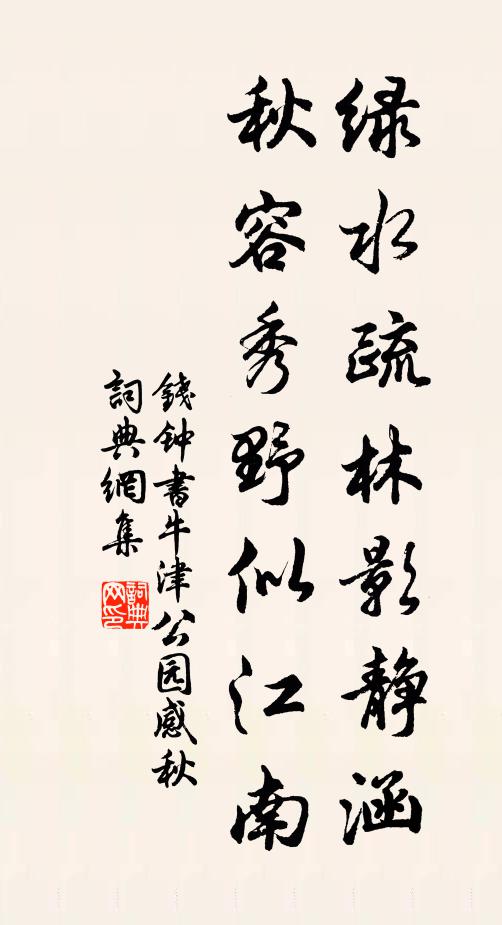 绿水疏林影静涵
秋容秀野似江南
錢钟書牛津公园感秋
詞典網集
詞典网印